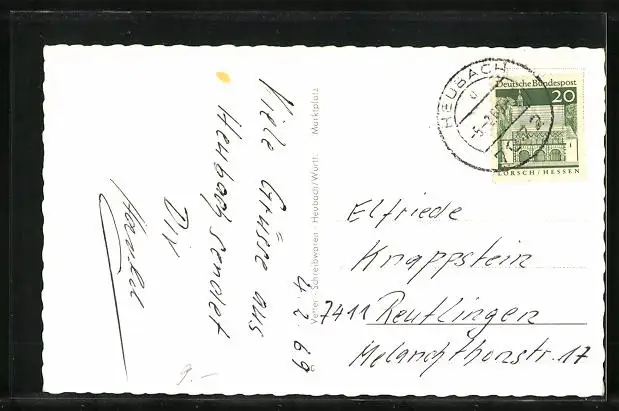 4. 2. 69
Viele Grüsse aus
Heubach sendet
Dir
9.–
Vetter · Schreibwaren · Heubach/Württ. Marktplatz
HEUBACH
7072
Deutsche Bundespost
20
LORSCH / HESSEN
Elfriede
Knappstein
7411 Reutlingen
Melanchthonstr. 17